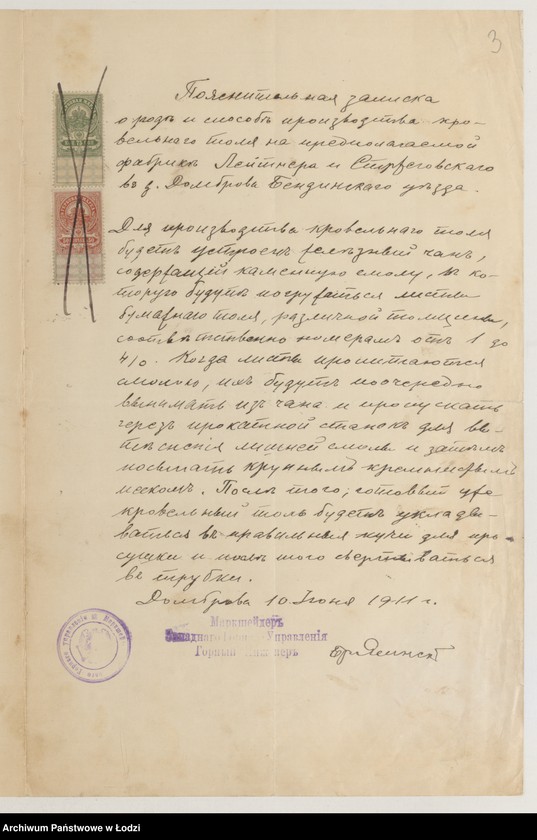 3
Пояснительная записка
о родѣ и способѣ производства кро-
вельнаго толя на предполагаемой
фабрикѣ Лейтнера и Стржеговскаго
въ д. Домброва Бендинскаго уѣзда.
Для производства кровельнаго толя
будетъ устроенъ желѣзный чанъ,
содержащій каменную смолу, въ ко-
торую будутъ погружаться листы
бумажнаго толя, различной толщины,
соотвѣтственно номерамъ отъ 1 до
4/0. Когда листы пропитаются
смолою, ихъ будутъ поочередно
вынимать изъ чана и пропускать
черезъ прокатной станокъ для вы-
тѣсненія лишней смолы и затѣмъ
посыпать крупнымъ кремнистымъ
пескомъ. Послѣ того, готовый уже
кровельный толь будетъ укладьі-
ваться въ правильныя кучи для про-
сушки и послѣ того свертываться
въ трубки.
Домброва 10 Іюня 1911 г.
Маркшейдеръ
Западнаго Горнаго Управленія
Горный Инженеръ
Archiwum Państwowe w Łodzi